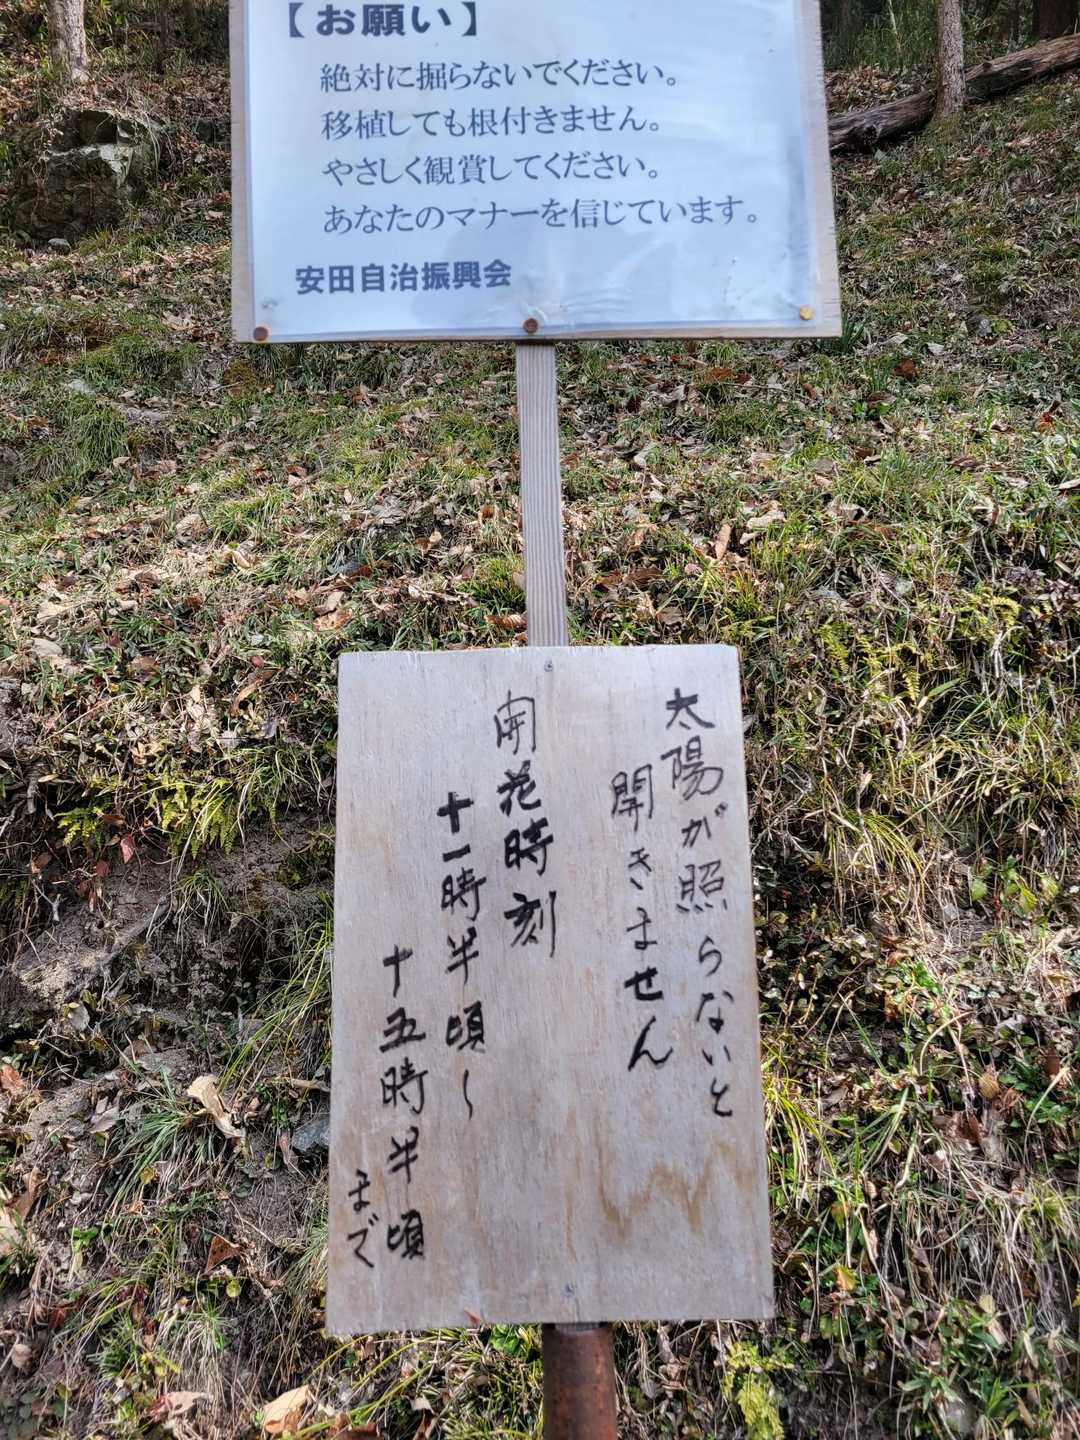 【お願い】
絶対に掘らないでください。
移植しても根付きません。
やさしく観賞してください。
あなたのマナーを信じています。
安田自治振興会
太陽が照らないと
開きません
開花時刻
十一時半頃〜
十五時半頃
まで